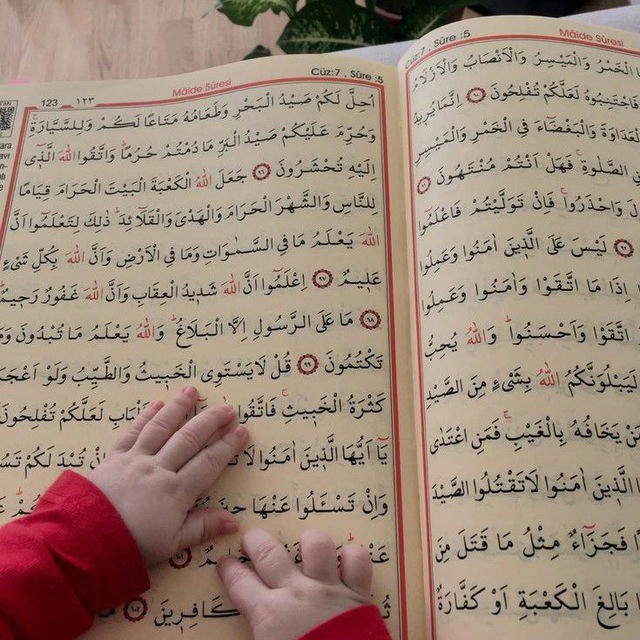 Cüz:7 , Sûre :5
Mâide Sûresi
الْخَمْرُ وَالْمَيْسِرُ وَالْاَنْصَابُ وَالْاَزْلَامُ
فَاجْتَنِبُوهُ لَعَلَّكُمْ تُفْلِحُونَ ﴿٩٠﴾ اِنَّمَا يُرِيدُ
الْعَدَاوَةَ وَالْبَغْضَٓاءَ فِي الْخَمْرِ وَالْمَيْسِرِ
الصَّلٰوةِۚ فَهَلْ اَنْتُمْ مُنْتَهُونَ ﴿٩١﴾
وَاحْذَرُواۚ فَاِنْ تَوَلَّيْتُمْ فَاعْلَمُٓوا
﴿٩٢﴾ لَيْسَ عَلَى الَّذ۪ينَ اٰمَنُوا وَعَمِلُوا
اِذَا مَا اتَّقَوْا وَاٰمَنُوا وَعَمِلُوا
اتَّقَوْا وَاَحْسَنُواۜ وَاللّٰهُ يُحِبُّ
لَيَبْلُوَنَّكُمُ اللّٰهُ بِشَيْءٍ مِنَ الصَّيْدِ
مَنْ يَخَافُهُ بِالْغَيْبِۚ فَمَنِ اعْتَدٰى
الَّذ۪ينَ اٰمَنُوا لَا تَقْتُلُوا الصَّيْدَ
فَجَزَٓاءٌ مِثْلُ مَا قَتَلَ مِنَ
بَالِغَ الْكَعْبَةِ اَوْ كَفَّارَةٌ
123 ١٢٣
Mâide Sûresi
Cüz:7 , Sûre :5
اُحِلَّ لَكُمْ صَيْدُ الْبَحْرِ وَطَعَامُهُ مَتَاعًا لَكُمْ وَلِلسَّيَّارَةِۚ
وَحُرِّمَ عَلَيْكُمْ صَيْدُ الْبَرِّ مَا دُمْتُمْ حُرُمًاۜ وَاتَّقُوا اللّٰهَ الَّذ۪ٓي
اِلَيْهِ تُحْشَرُونَ ﴿٩٦﴾ جَعَلَ اللّٰهُ الْكَعْبَةَ الْبَيْتَ الْحَرَامَ قِيَامًا
لِلنَّاسِ وَالشَّهْرَ الْحَرَامَ وَالْهَدْيَ وَالْقَلَٓائِدَۜ ذٰلِكَ لِتَعْلَمُٓوا اَنَّ
اللّٰهَ يَعْلَمُ مَا فِي السَّمٰوَاتِ وَمَا فِي الْاَرْضِ وَاَنَّ اللّٰهَ بِكُلِّ شَيْءٍ
عَل۪يمٌ ﴿٩٧﴾ اِعْلَمُٓوا اَنَّ اللّٰهَ شَد۪يدُ الْعِقَابِ وَاَنَّ اللّٰهَ غَفُورٌ رَح۪يمٌ
﴿٩٨﴾ مَا عَلَى الرَّسُولِ اِلَّا الْبَلَاغُۜ وَاللّٰهُ يَعْلَمُ مَا تُبْدُونَ وَمَا
تَكْتُمُونَ ﴿٩٩﴾ قُلْ لَا يَسْتَوِي الْخَب۪يثُ وَالطَّيِّبُ وَلَوْ اَعْجَبَكَ
كَثْرَةُ الْخَب۪يثِۚ فَاتَّقُوا لَعَلَّكُمْ تُفْلِحُونَ
يَٓا اَيُّهَا الَّذ۪ينَ اٰمَنُوا لَا اِنْ تُبْدَ لَكُمْ
وَاِنْ تَسْـَٔلُوا عَنْهَا
كَافِر۪ينَ